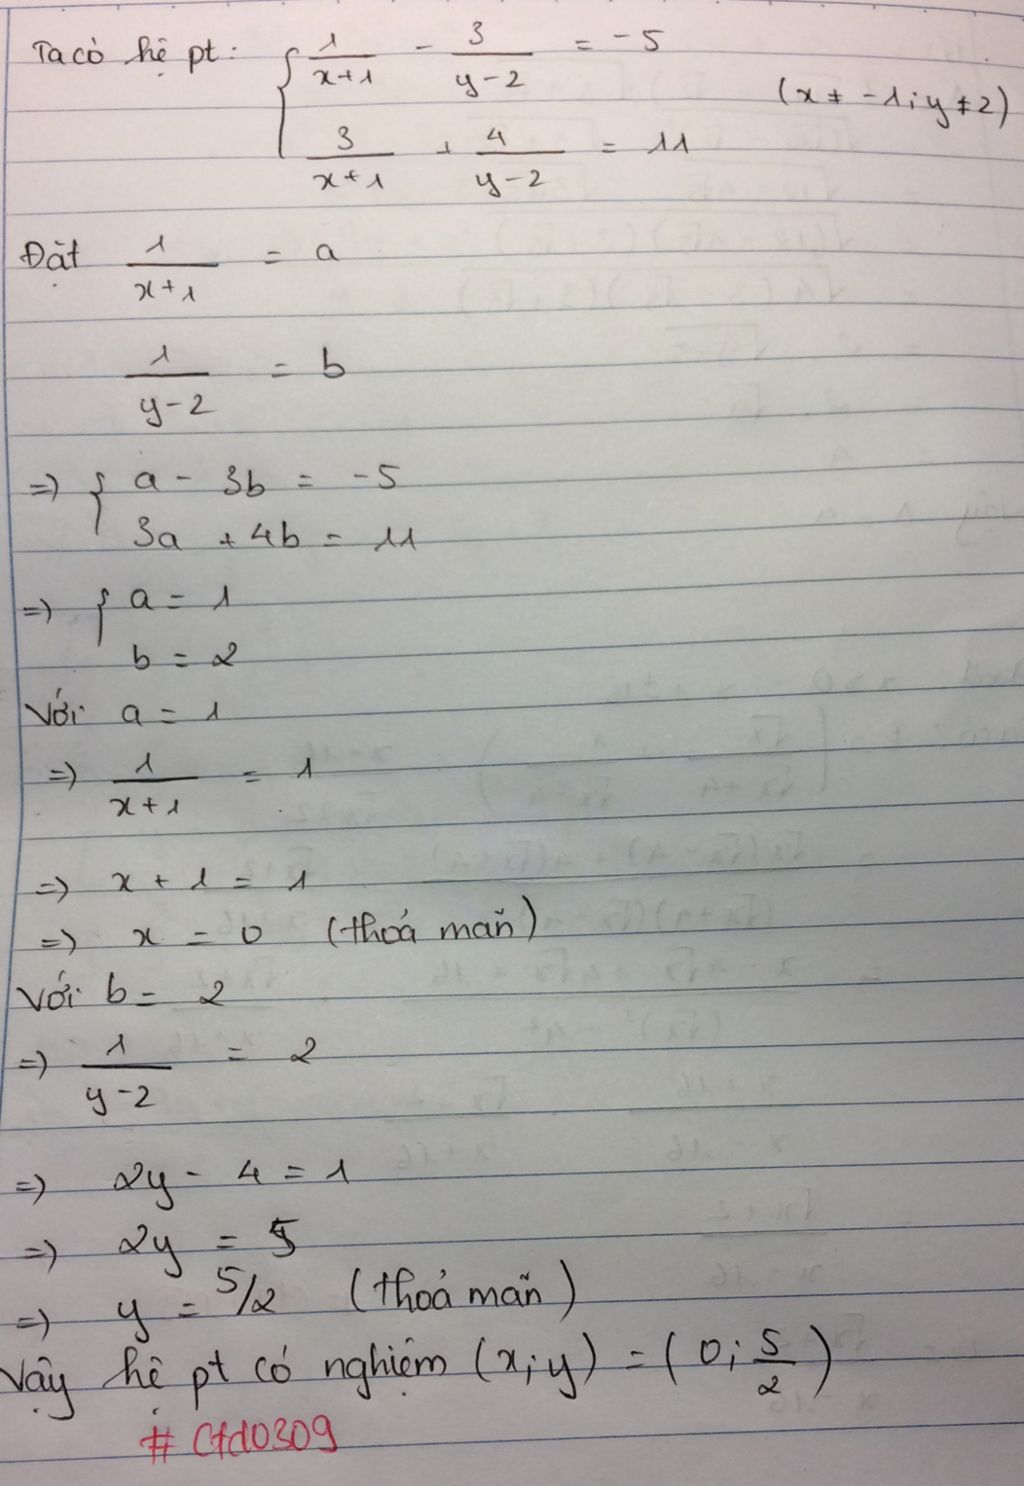 Ta có hệ pt: { 1/(x+1) - 3/(y-2) = -5
3/(x+1) + 4/(y-2) = 11 (x ≠ -1; y ≠ 2)
Đặt 1/(x+1) = a
1/(y-2) = b
=> { a - 3b = -5
3a + 4b = 11
=> { a = 1
b = 2
Với a = 1
=> 1/(x+1) = 1
=> x + 1 = 1
=> x = 0 (thoả mãn)
Với b = 2
=> 1/(y-2) = 2
=> 2y - 4 = 1
=> 2y = 5
=> y = 5/2 (thoả mãn)
Vậy hệ pt có nghiệm (x; y) = (0; 5/2)
# Ctd0309